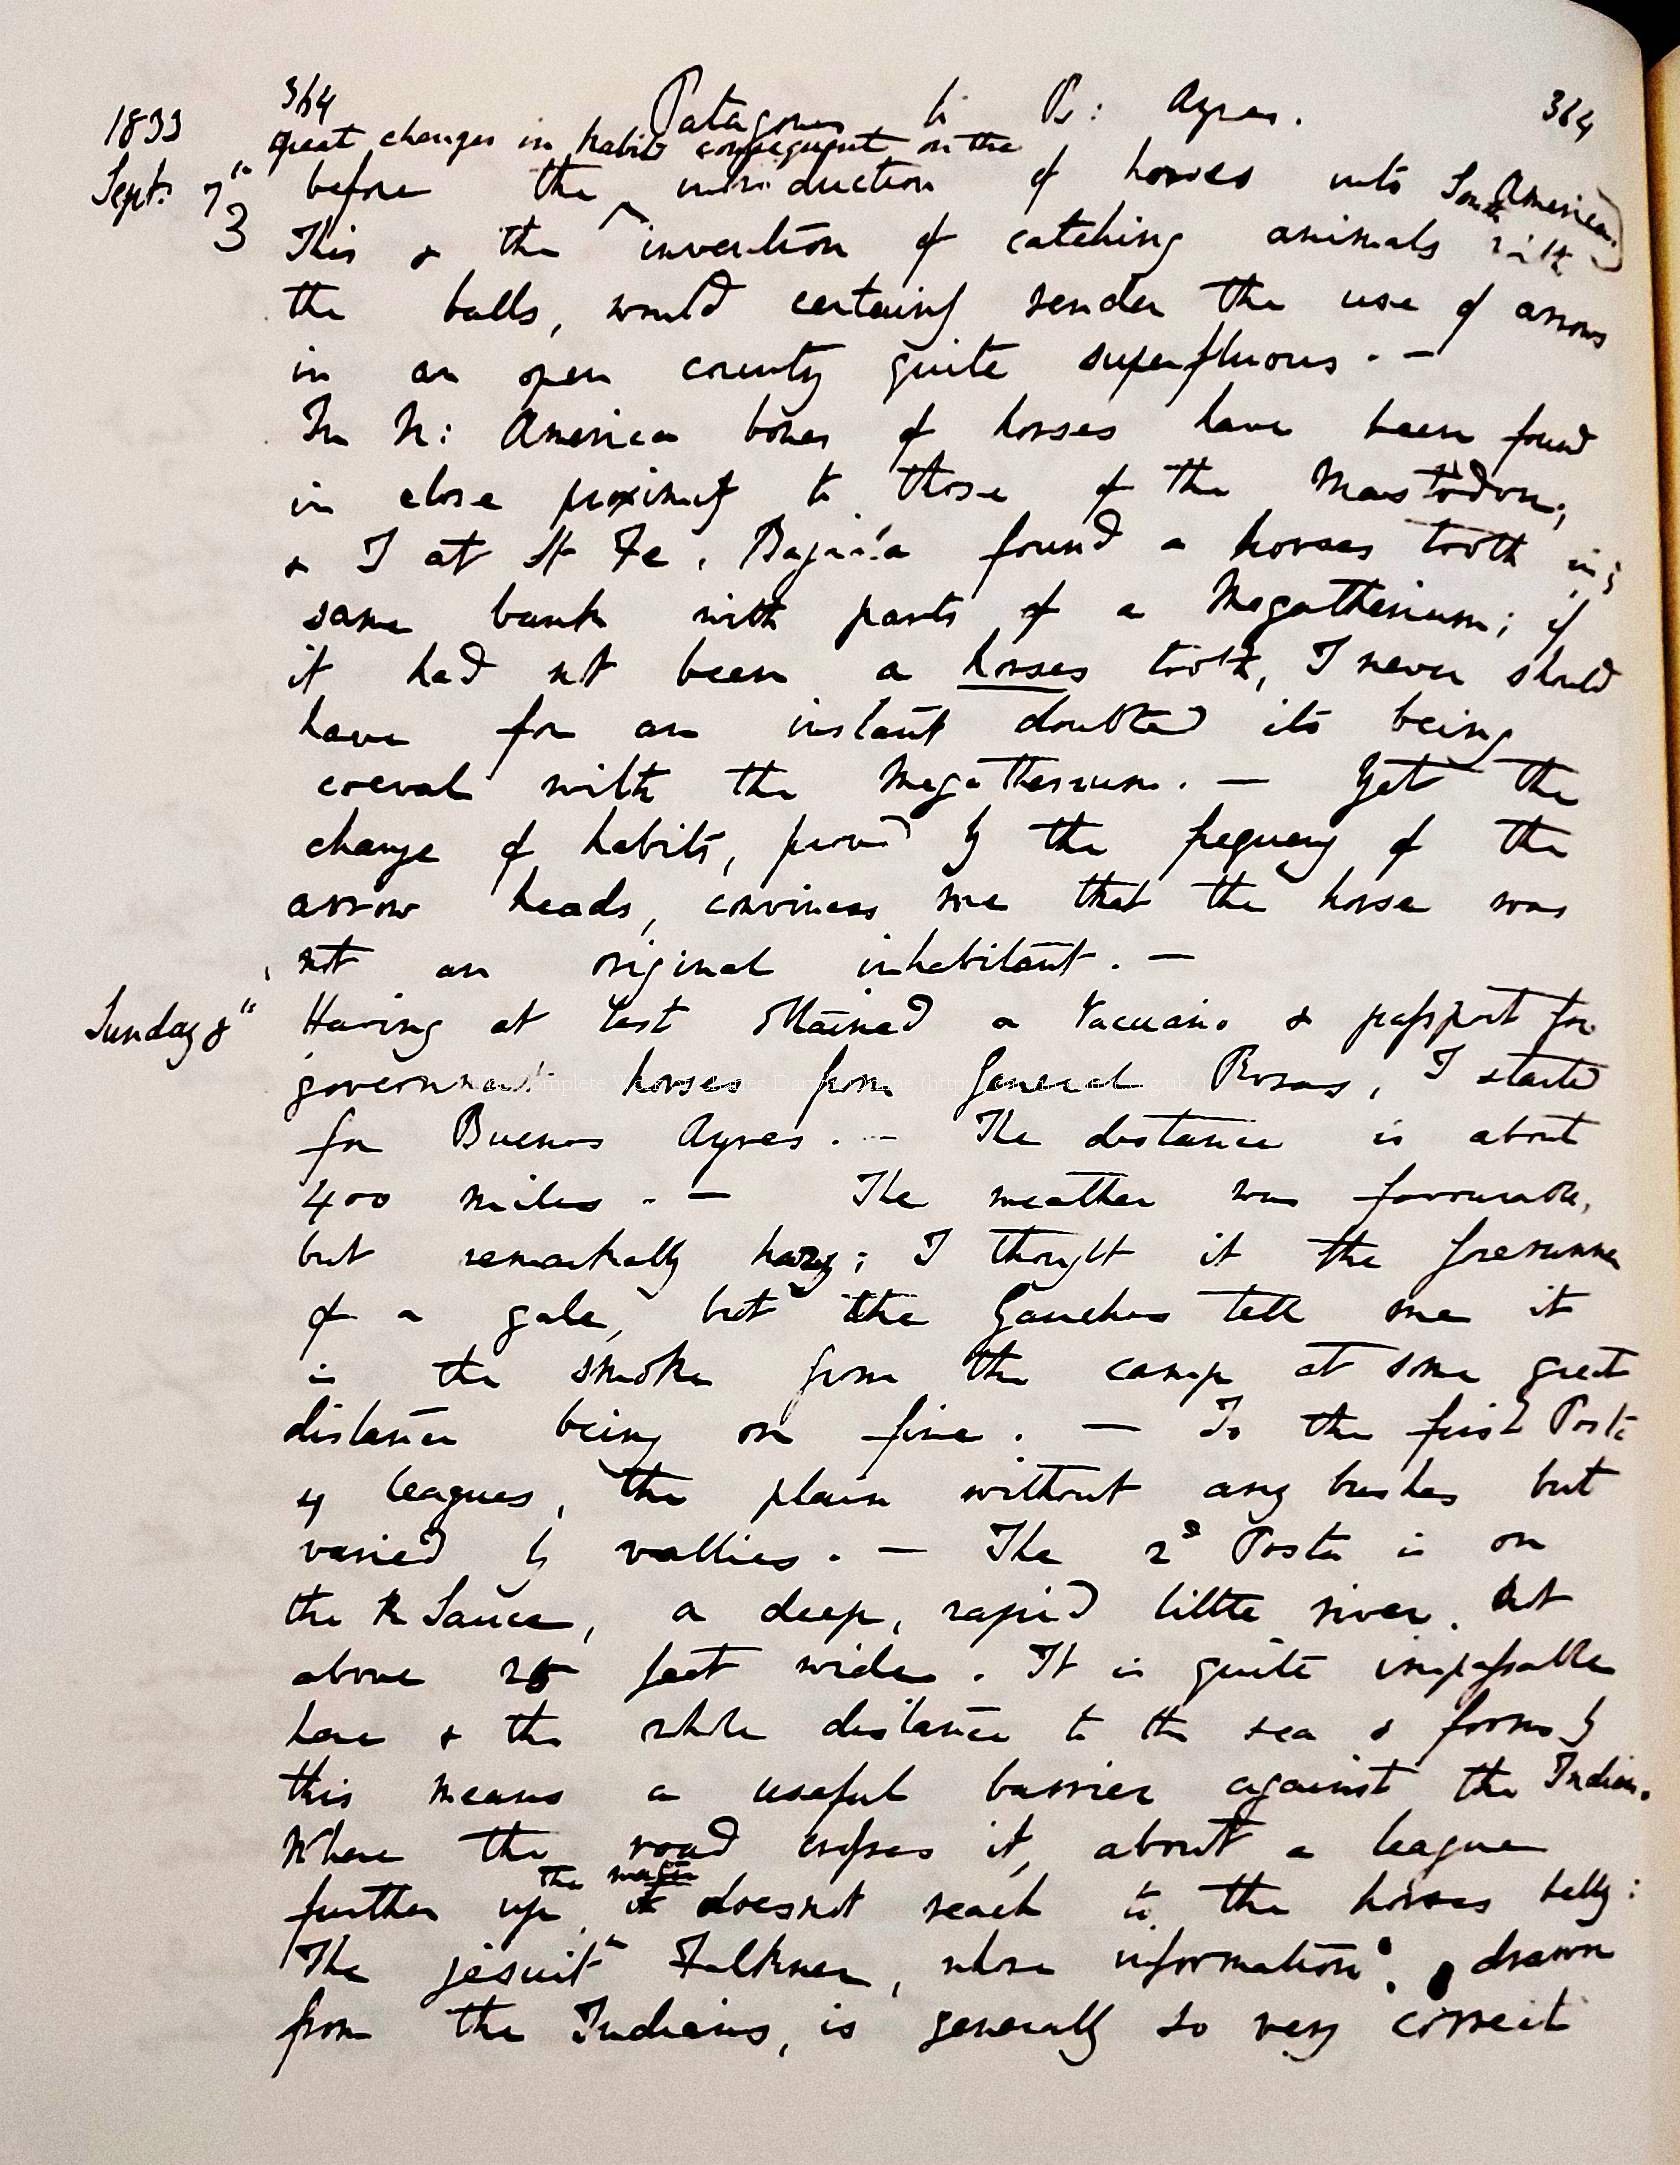 364 Patagones to B: Ayres. 364
1833
great changes in habits consequent on the
Sept: 7th before the introduction of horses into South America)
3 This & the invention of catching animals with
the balls, would certainly render the use of arrows
in an open county quite superfluous. —
In N: America bones of horses have been found
in close proximity to those of the Mastodon;
& I at St Fe. Bajada found a horses tooth in
same bank with parts of a Megatherium; if
it had not been a horses tooth, I never should
have for an instant doubted its being
coeval with the Megatherium. — Yet the
change of habits, proved by the frequency of the
arrow heads, convinces me that the horse was
not an original inhabitant. —
Sunday 8th Having at last obtained a Vacciano & passport for
government horses from General Rosas, I started
for Buenos Ayres. — The distance is about
400 miles. — The weather was favourable,
but remarkably hazy; I thought it the forerunner
of a gale, but the Gauchos tell me it
is the smoke from the camp at some great
distance being on fire. — To the first Posta
4 leagues, the plain without any bushes but
varied by vallies. — The 2d Posta is on
the R Sauce, a deep, rapid little river. not
above 25 feet wide. It is quite impassable
here & the whole distance to the sea & forms by
this means a useful barrier against the Indians.
Where the road crosses it, about a league
the water
further up, it does not reach to the horses belly:
The jesuit Falkner, whose information drawn
from the Indians, is generally so very correct